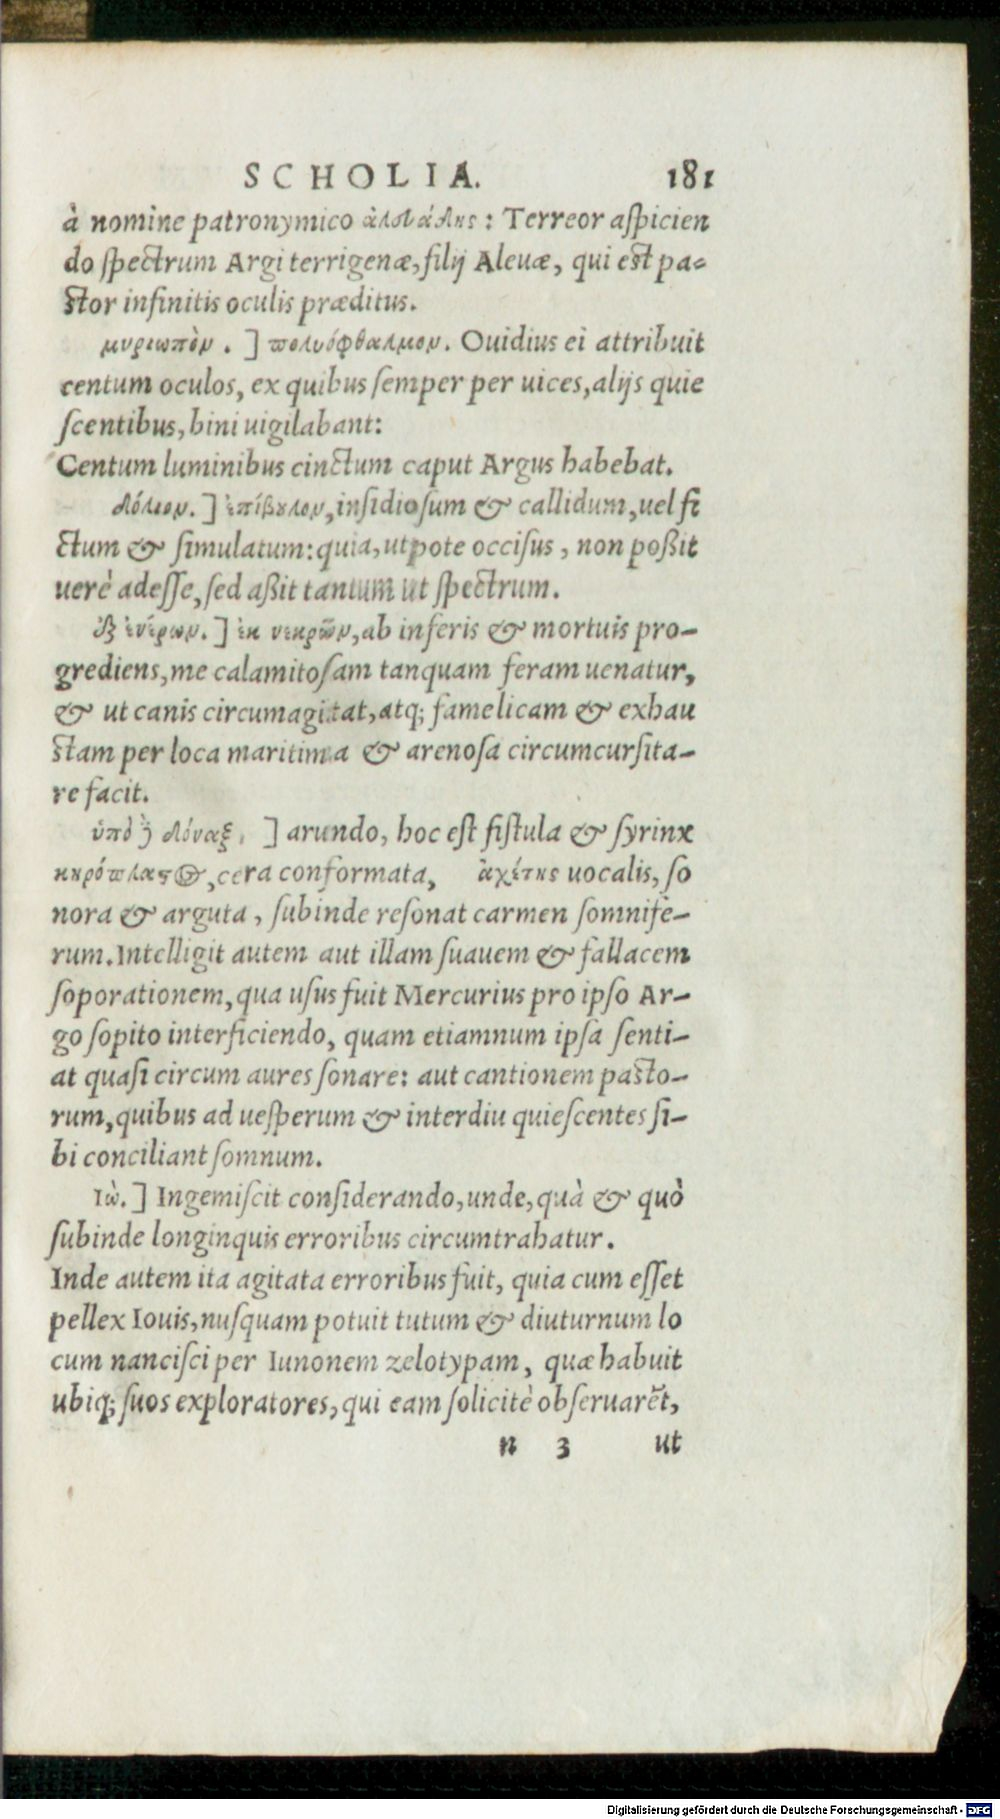 SCHOLIA. 181
à nomine patronymico ἀλϵυάδης: Terreor aſpicien
do ſpectrum Argi terrigenæ, filij Aleuæ, qui est pa-
ſtor infinitis oculis præditus.
μυριωπὸν. ] πολυόφθαλμον. Ouidius ei attribuit
centum oculos, ex quibus ſemper per uices, alijs quie
ſcentibus, bini uigilabant:
Centum luminibus cinctum caput Argus habebat.
δόλιον. ] ἐπίβουλον, inſidioſum & callidum, uel fi
ctum & ſimulatum: quia, utpote occiſus, non poßit
uerè adeſſe, ſed aßit tantum ut ſpectrum.
ἐξ ἐνέρων. ] ἐκ νεκρῶν, ab inferis & mortuis pro-
grediens, me calamitoſam tanquam feram uenatur,
& ut canis circumagitat, atq; famelicam & exhau
ſtam per loca maritima & arenoſa circumcurſita-
re facit.
ὑπὸ δὲ δόναξ. ] arundo, hoc eſt fiſtula & ſyrinx
κηρόπλαστος, cera conformata, ἀχέτης uocalis, ſo
nora & arguta, ſubinde reſonat carmen ſomnife-
rum. Intelligit autem aut illam ſuauem & fallacem
ſoporationem, qua uſus fuit Mercurius pro ipſo Ar-
go ſopito interficiendo, quam etiamnum ipſa ſenti-
at quaſi circum aures ſonare: aut cantionem paſto-
rum, quibus ad ueſperum & interdiu quieſcentes ſi-
bi conciliant ſomnum.
Ιὼ. ] Ingemiſcit conſiderando, unde, quà & quò
ſubinde longinquis erroribus circumtrahatur.
Inde autem ita agitata erroribus fuit, quia cum eſſet
pellex Iouis, nuſquam potuit tutum & diuturnum lo
cum nanciſci per Iunonem zelotypam, quæ habuit
ubiq; ſuos exploratores, qui eam ſolicitè obſeruarēt,
n 3 ut
Digitalisierung gefördert durch die Deutsche Forschungsgemeinschaft - DFG